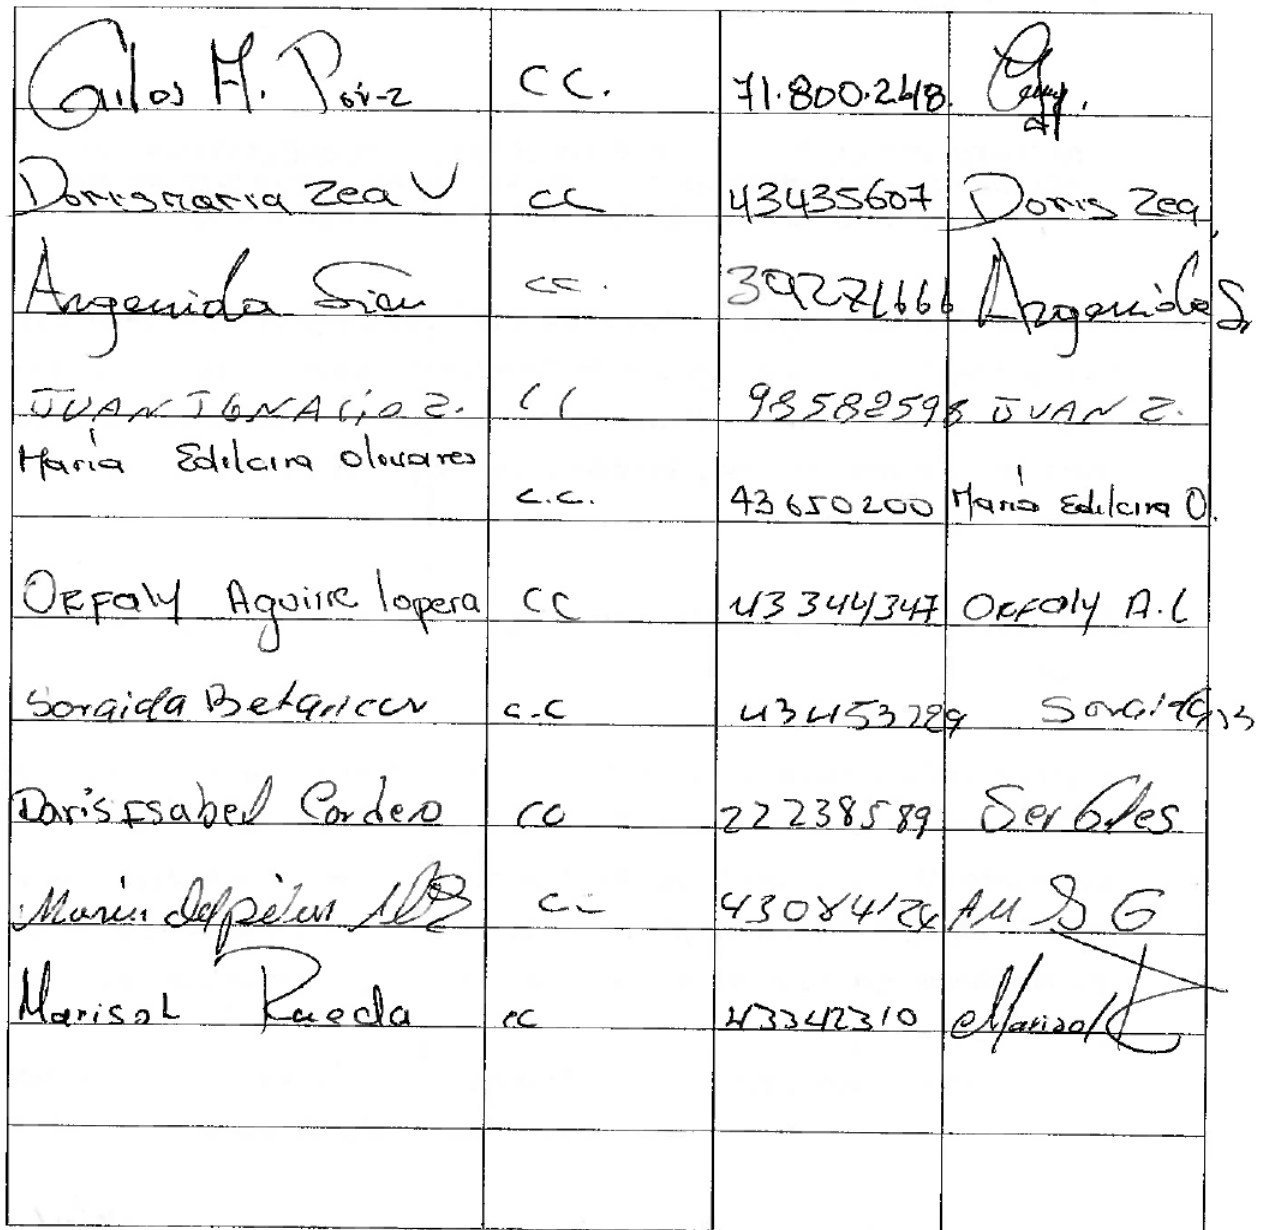 Carlos A. CC. 71.800.248.
Dorismaria Zea V CC 43435607 Doris Zea
Argenida Sierra cc. 39271666 Argenida S.
JUAN IGNACIO Z. CC 98582593 JUAN Z.
María Edilcira Olivares
c.c. 43650200 María Edilcira O.
ORFaly Aguirre lopera CC 43344347 ORFaly A.L
Soraida Betancur c.c 43453289 Soraida B
Doris Isabel Cordero CC 22238589
María del pilar cc
Marisol Rueda cc 43342310 Marisol R